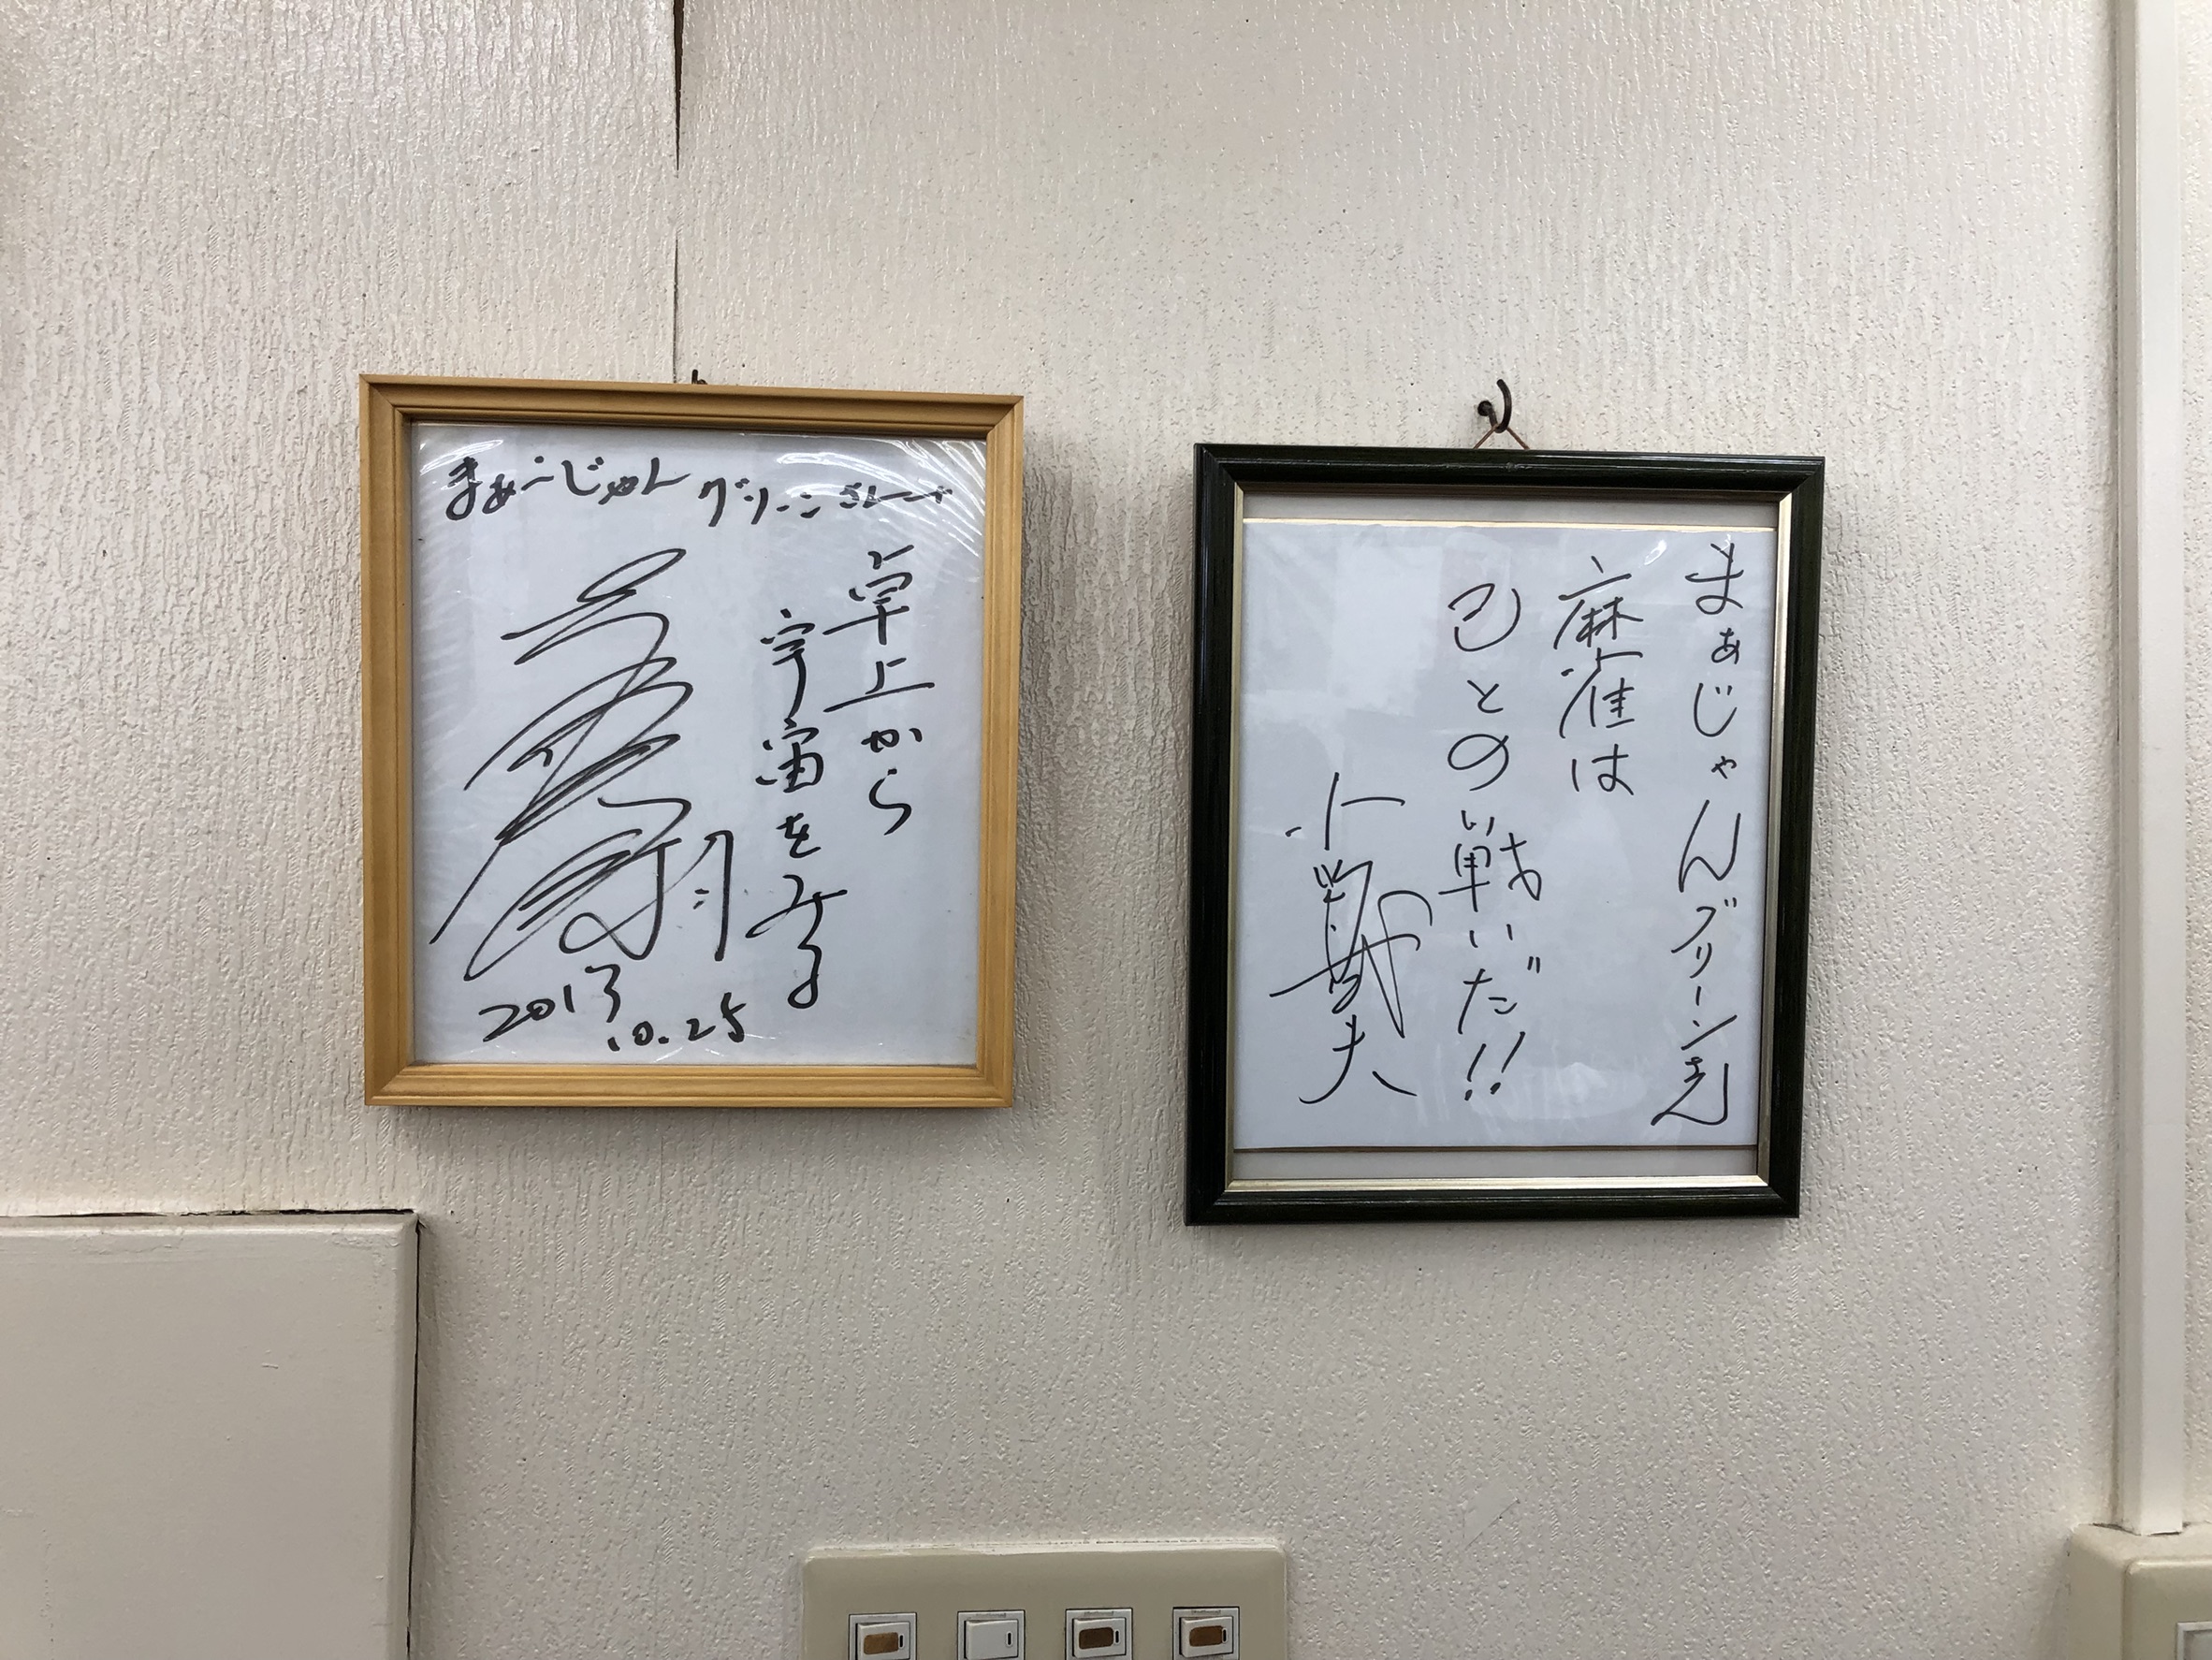 まぁーじゃん グリーンさんへ
卓上から
宇宙をみる
2013
10.25
まぁじゃんグリーンさん
麻雀は
己との戦いだ!!